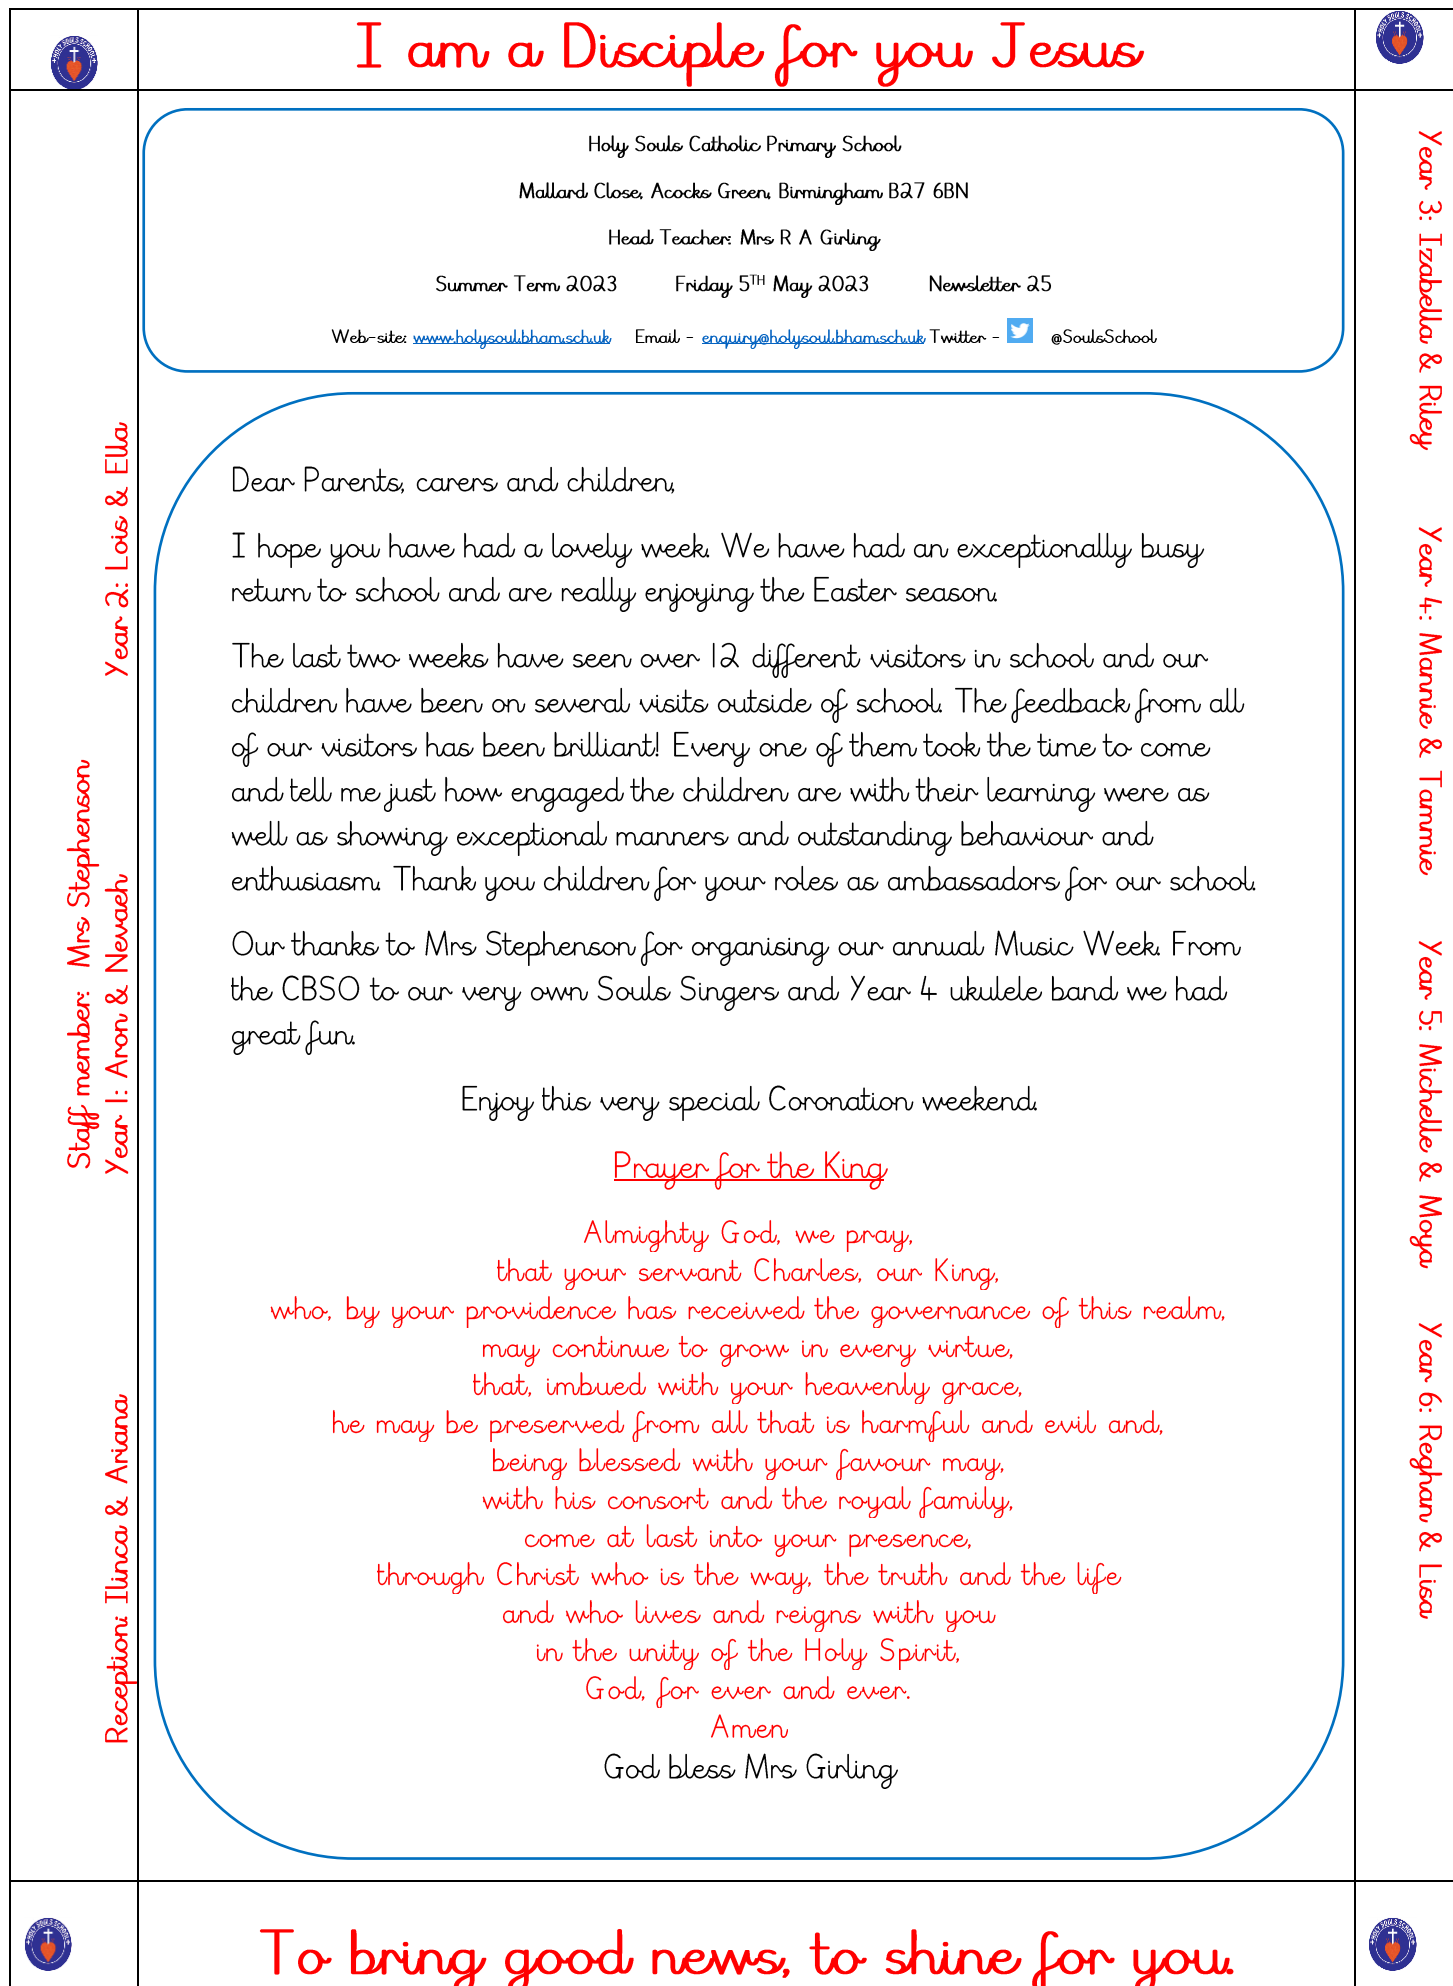 I am a Disciple for you Jesus
Holy Souls Catholic Primary School
Mallard Close, Acocks Green, Birmingham B27 6BN
Head Teacher: Mrs R A Girling
Summer Term 2023 Friday 5TH May 2023 Newsletter 25
Web-site: www.holysoul.bham.sch.uk Email - enquiry@holysoul.bham.sch.uk Twitter - @SoulsSchool
Dear Parents, carers and children,
I hope you have had a lovely week. We have had an exceptionally busy
return to school and are really enjoying the Easter season.
The last two weeks have seen over 12 different visitors in school and our
children have been on several visits outside of school. The feedback from all
of our visitors has been brilliant! Every one of them took the time to come
and tell me just how engaged the children are with their learning were as
well as showing exceptional manners and outstanding behaviour and
enthusiasm. Thank you children for your roles as ambassadors for our school.
Our thanks to Mrs Stephenson for organising our annual Music Week. From
the CBSO to our very own Souls Singers and Year 4 ukulele band we had
great fun.
Enjoy this very special Coronation weekend.
Prayer for the King
Almighty God, we pray,
that your servant Charles, our King,
who, by your providence has received the governance of this realm,
may continue to grow in every virtue,
that, imbued with your heavenly grace,
he may be preserved from all that is harmful and evil and,
being blessed with your favour may,
with his consort and the royal family,
come at last into your presence,
through Christ who is the way, the truth and the life
and who lives and reigns with you
in the unity of the Holy Spirit,
God, for ever and ever.
Amen
God bless Mrs Girling
Staff member: Mrs Stephenson
Reception: Ilinca & Ariana
Year 1: Aron & Nevaeh
Year 2: Lois & Ella
Year 3: Izabella & Riley
Year 4: Mannie & Tammie
Year 5: Michelle & Moya
Year 6: Reghan & Lisa
To bring good news, to shine for you.
HOLY SOULS SCHOOL
HOLY SOULS SCHOOL
HOLY SOULS SCHOOL
HOLY SOULS SCHOOL